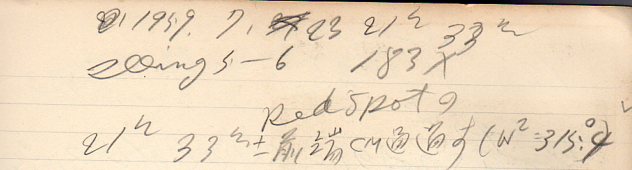 1959. 7. 23 21h 33m
seeing 5-6 183X
Red Spot の
21h 33m± 前端 CM通過す (W2=315.°4)